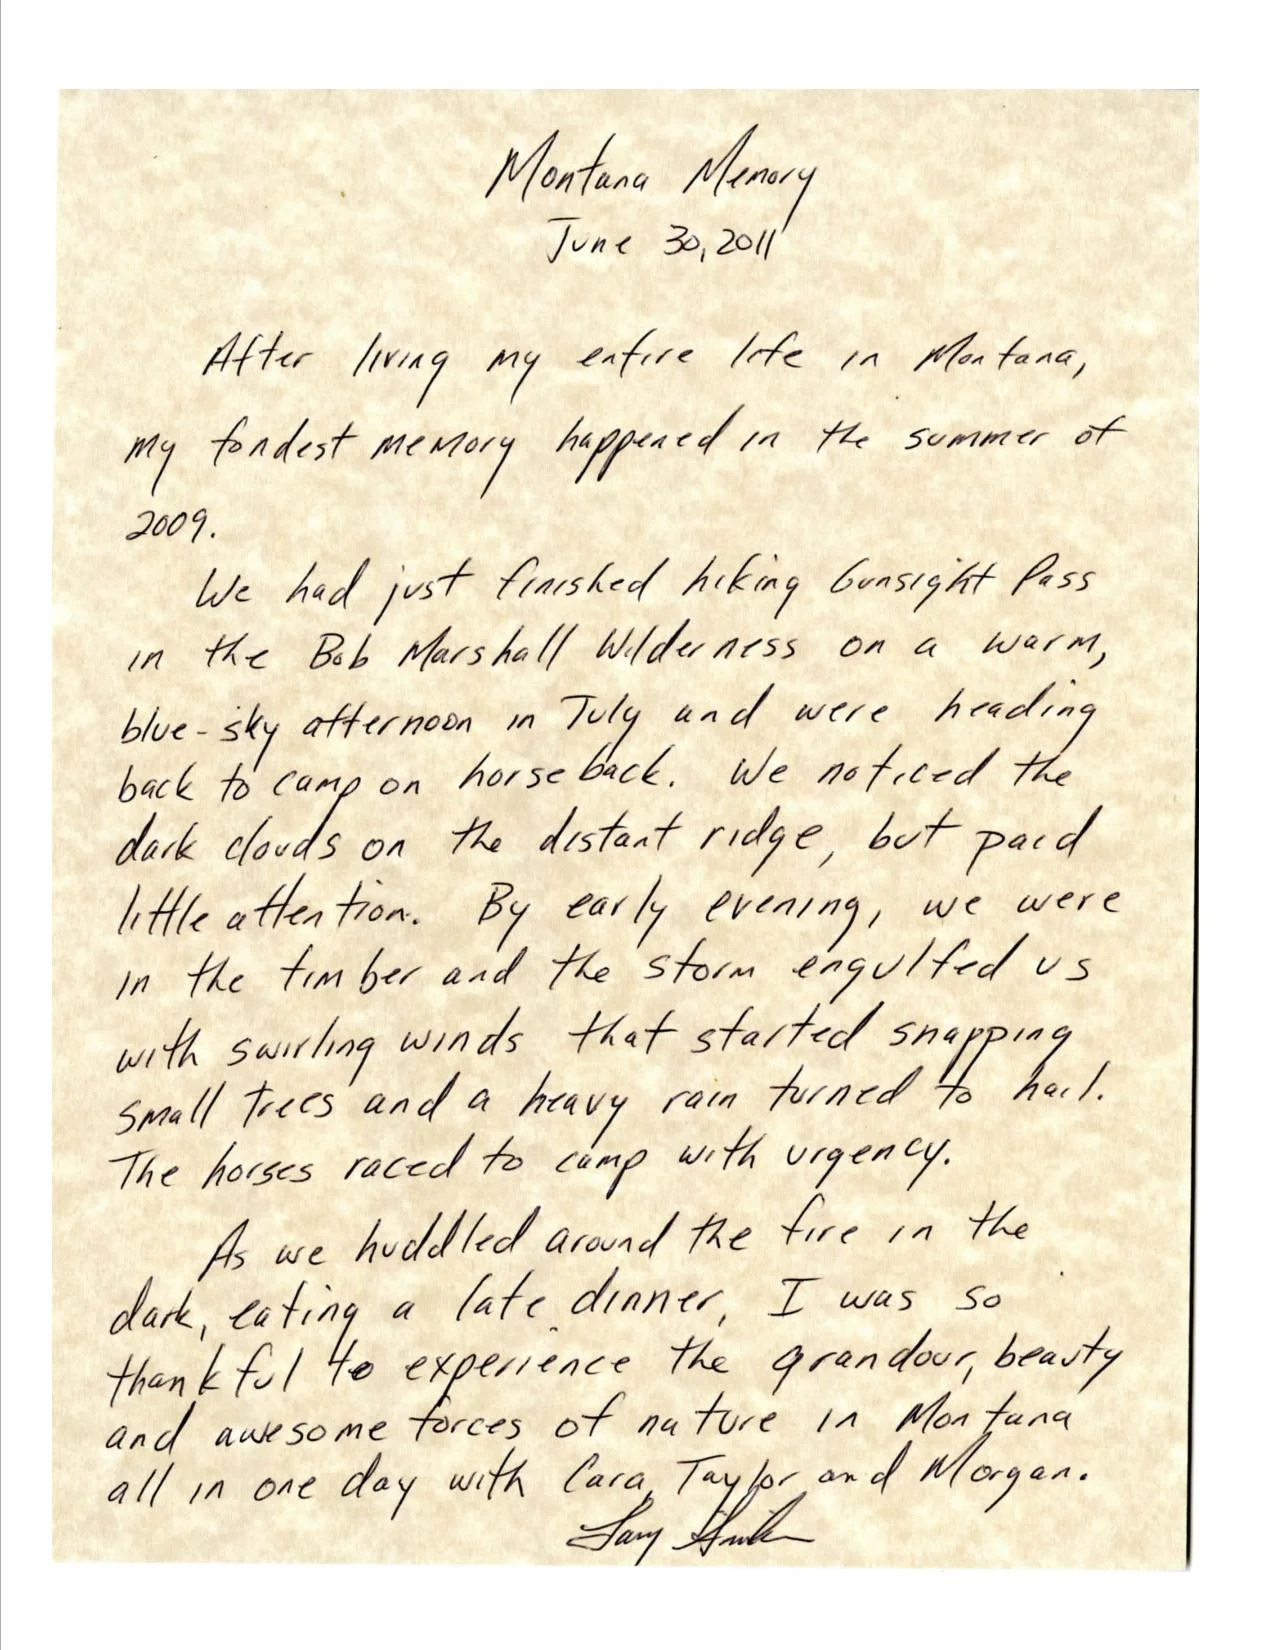 Montana Memory
June 30, 2011
After living my entire life in Montana,
my fondest memory happened in the summer of
2009.
We had just finished hiking Gunsight Pass
in the Bob Marshall Wilderness on a warm,
blue-sky afternoon in July and were heading
back to camp on horseback. We noticed the
dark clouds on the distant ridge, but paid
little attention. By early evening, we were
in the timber and the storm engulfed us
with swirling winds that started snapping
small trees and a heavy rain turned to hail.
The horses raced to camp with urgency.
As we huddled around the fire in the
dark, eating a late dinner, I was so
thankful to experience the grandour, beauty
and awesome forces of nature in Montana
all in one day with Cara, Taylor and Morgan.